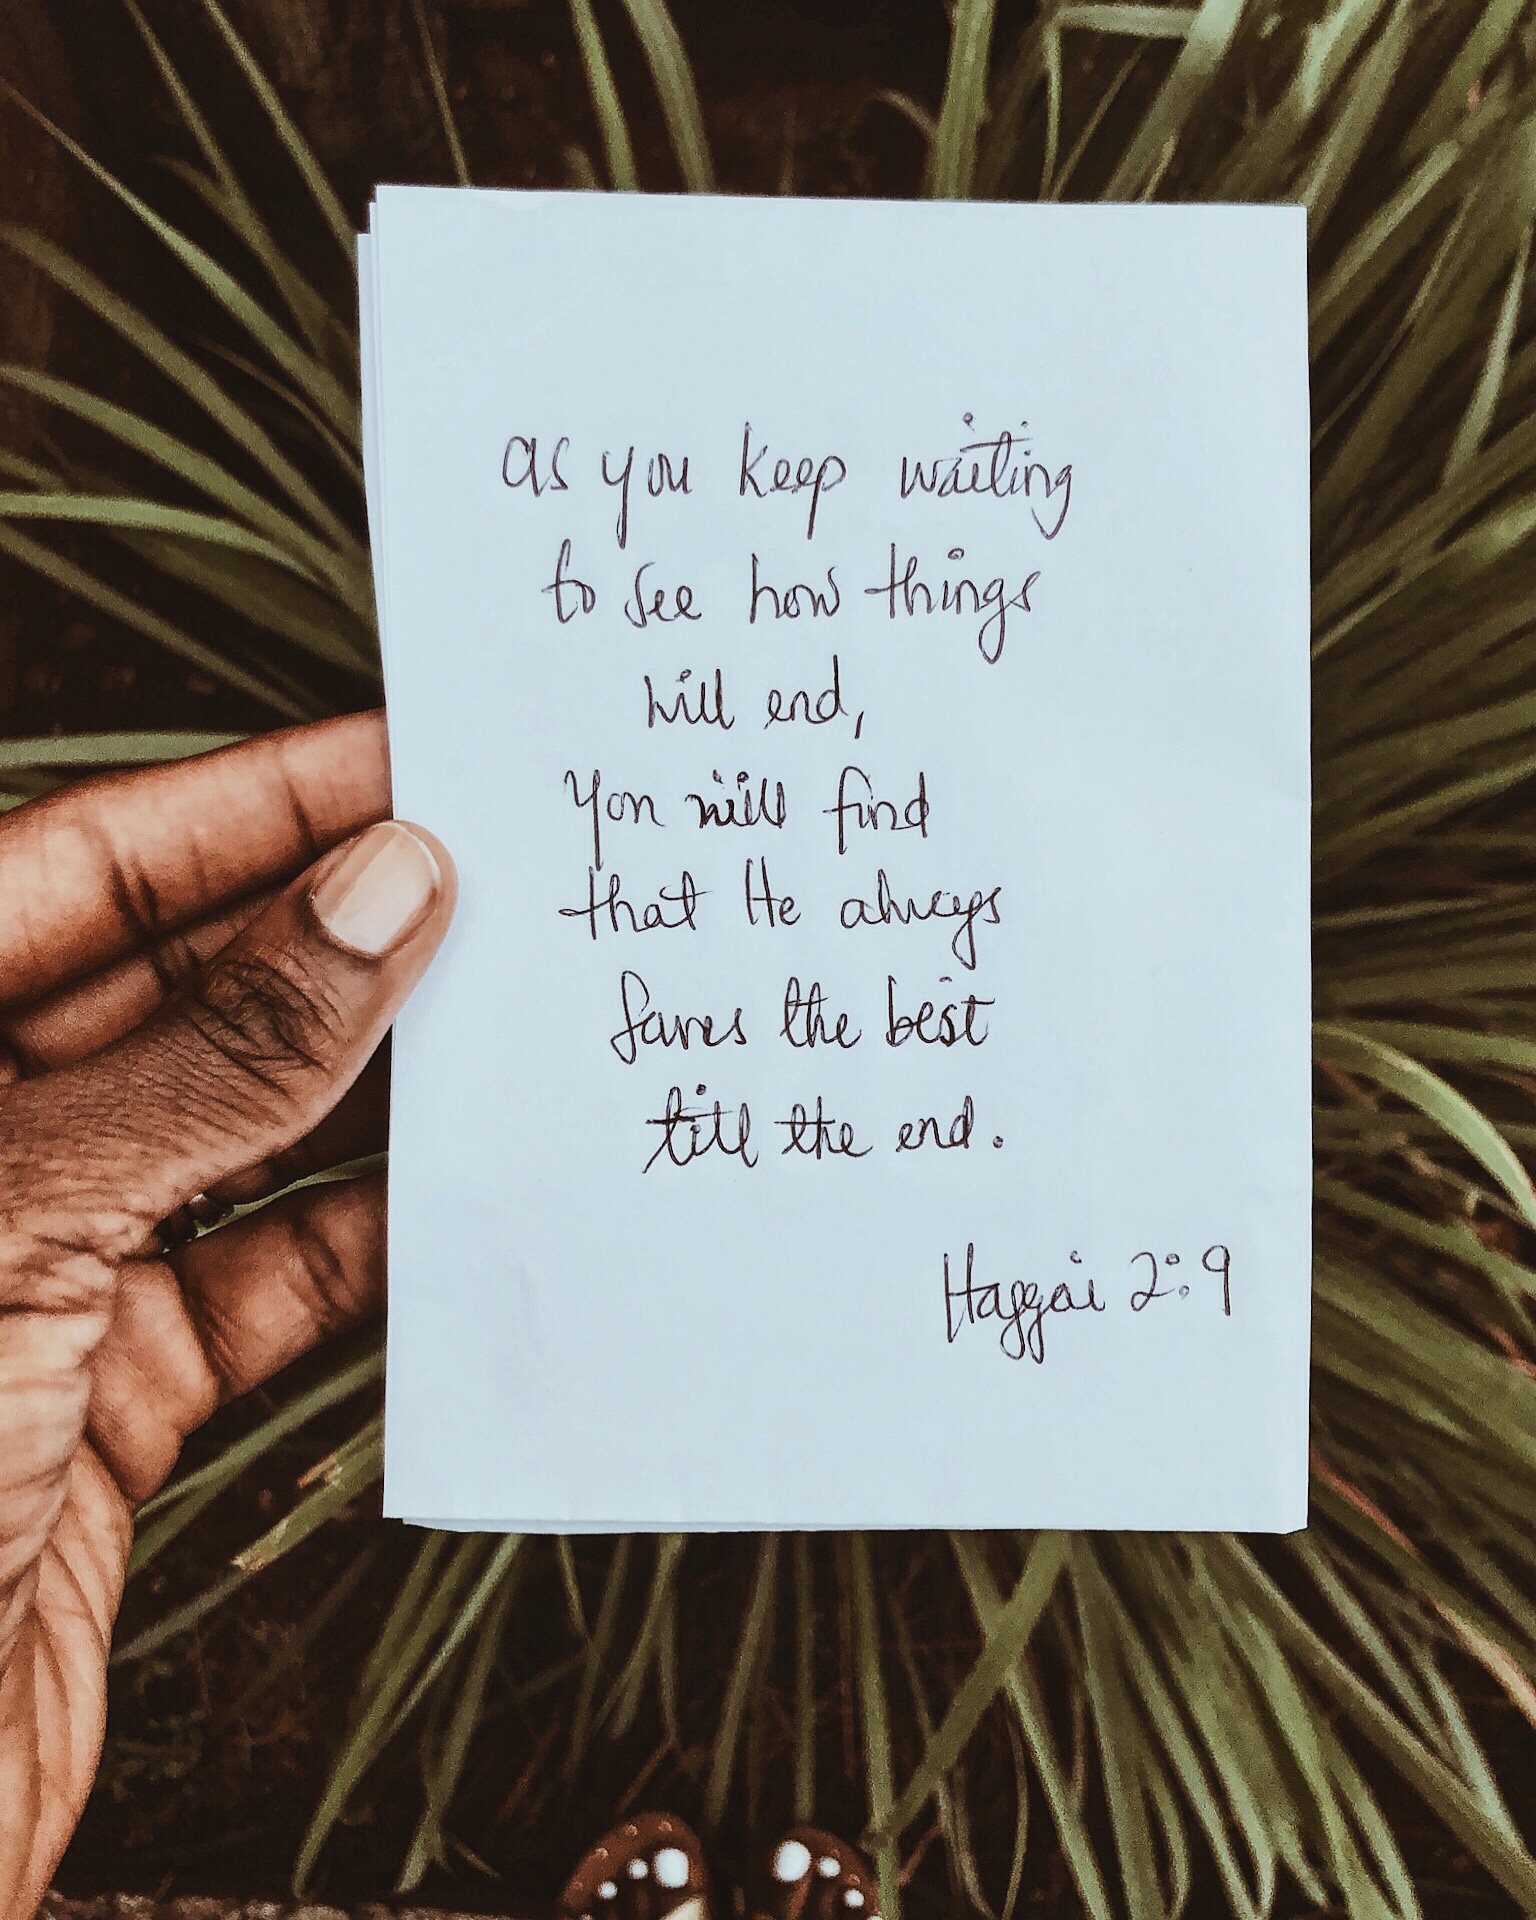 as you keep waiting
to see how things
will end,
You will find
that He always
saves the best
till the end.
Haggai 2:9